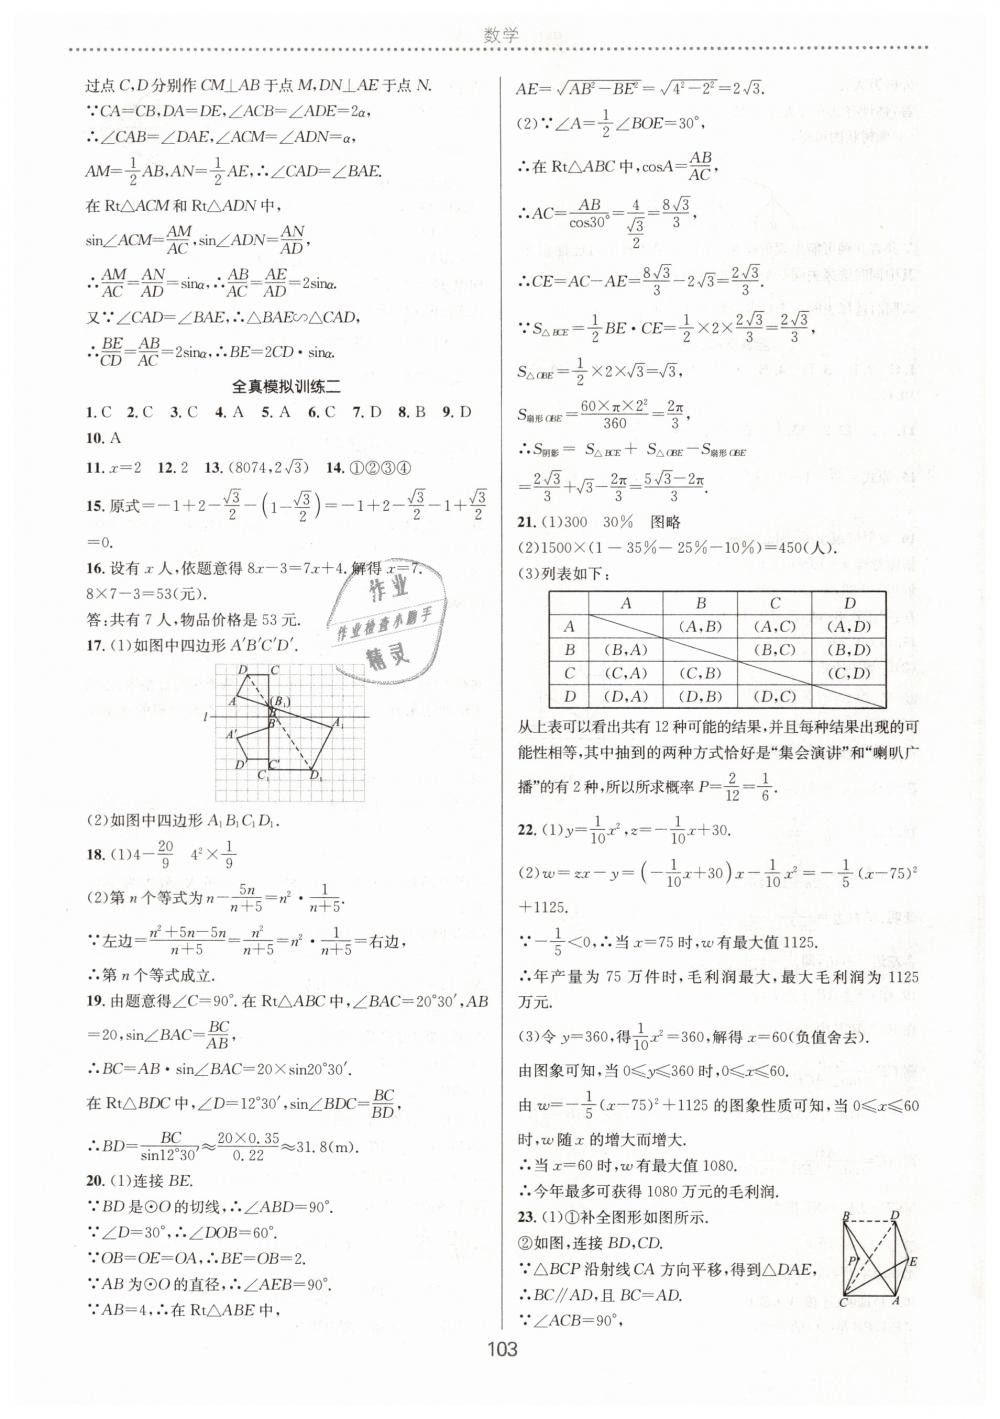 数学
过点 C,D 分别作 CM⊥AB 于点 M,DN⊥AE 于点 N.
∵CA=CB,DA=DE,∠ACB=∠ADE=2α,
∴∠CAB=∠DAE,∠ACM=∠ADN=α,
AM=1/2AB,AN=1/2AE,∴∠CAD=∠BAE.
在 Rt△ACM 和 Rt△ADN 中,
sin∠ACM=AM/AC,sin∠ADN=AN/AD,
∴AM/AC=AN/AD=sinα,∴AB/AC=AE/AD=2sinα.
又∵∠CAD=∠BAE,∴△BAE∽△CAD,
∴BE/CD=AB/AC=2sinα,∴BE=2CD·sinα.
全真模拟训练二
1. C 2. C 3. C 4. A 5. A 6. C 7. D 8. B 9. D
10. A
11. x=2 12. 2 13. (8074,2√3) 14. ①②③④
15. 原式=-1+2-√3/2-(1-√3/2)=-1+2-√3/2-1+√3/2
=0.
16. 设有 x 人,依题意得 8x-3=7x+4. 解得 x=7.
8×7-3=53(元).
答:共有 7 人,物品价格是 53 元.
17. (1)如图中四边形 A′B′C′D′.
D C
A (B₁)
l B
B′ A₁
A′
D′ C′
C₁ D₁
(2)如图中四边形 A₁B₁C₁D₁.
18. (1)4-20/9 4²×1/9
(2)第 n 个等式为 n-5n/(n+5)=n²·1/(n+5).
∵左边=(n²+5n-5n)/(n+5)=n²/(n+5)=n²·1/(n+5)=右边,
∴第 n 个等式成立.
19. 由题意得∠C=90°. 在 Rt△ABC 中,∠BAC=20°30′,AB
=20,sin∠BAC=BC/AB,
∴BC=AB·sin∠BAC=20×sin20°30′.
在 Rt△BDC 中,∠D=12°30′,sin∠BDC=BC/BD,
∴BD=BC/sin12°30′≈(20×0.35)/0.22≈31.8(m).
20. (1)连接 BE.
∵BD 是⊙O 的切线,∴∠ABD=90°.
∵∠D=30°,∴∠DOB=60°.
∵OB=OE=OA,∴BE=OB=2.
∵AB 为⊙O 的直径,∴∠AEB=90°.
∵AB=4,∴在 Rt△ABE 中,
AE=√(AB²-BE²)=√(4²-2²)=2√3.
(2)∵∠A=1/2∠BOE=30°,
∴在 Rt△ABC 中,cosA=AB/AC,
∴AC=AB/cos30°=4/(√3/2)=8√3/3,
∴CE=AC-AE=8√3/3-2√3=2√3/3.
∵S△BCE=1/2BE·CE=1/2×2×2√3/3=2√3/3,
S△OBE=1/2×2×√3=√3,
S扇形OBE=(60×π×2²)/360=2π/3,
∴S阴影= S△BCE + S△OBE-S扇形OBE
=2√3/3+√3-2π/3=(5√3-2π)/3.
21. (1)300 30% 图略
(2)1500×(1-35%-25%-10%)=450(人).
(3)列表如下:
A B C D
A (A,B) (A,C) (A,D)
B (B,A) (B,C) (B,D)
C (C,A) (C,B) (C,D)
D (D,A) (D,B) (D,C)
从上表可以看出共有 12 种可能的结果,并且每种结果出现的可
能性相等,其中抽到的两种方式恰好是“集会演讲”和“喇叭广
播”的有 2 种,所以所求概率 P=2/12=1/6.
22. (1)y=1/10x²,z=-1/10x+30.
(2)w=zx-y=(-1/10x+30)x-1/10x²=-1/5(x-75)²
+1125.
∵-1/5<0,∴当 x=75 时,w 有最大值 1125.
∴年产量为 75 万件时,毛利润最大,最大毛利润为 1125
万元.
(3)令 y=360,得1/10x²=360,解得 x=60(负值舍去).
由图象可知,当 0⩽y⩽360 时,0⩽x⩽60.
由 w=-1/5(x-75)²+1125 的图象性质可知,当 0⩽x⩽60
时,w 随 x 的增大而增大.
∴当 x=60 时,w 有最大值 1080.
∴今年最多可获得 1080 万元的毛利润.
23. (1)①补全图形如图所示.
②如图,连接 BD,CD.
∵△BCP 沿射线 CA 方向平移,得到△DAE,
∴BC∥AD,且 BC=AD.
∵∠ACB=90°,
B D
P E
C A
作业
作业检查小助手
精灵
103